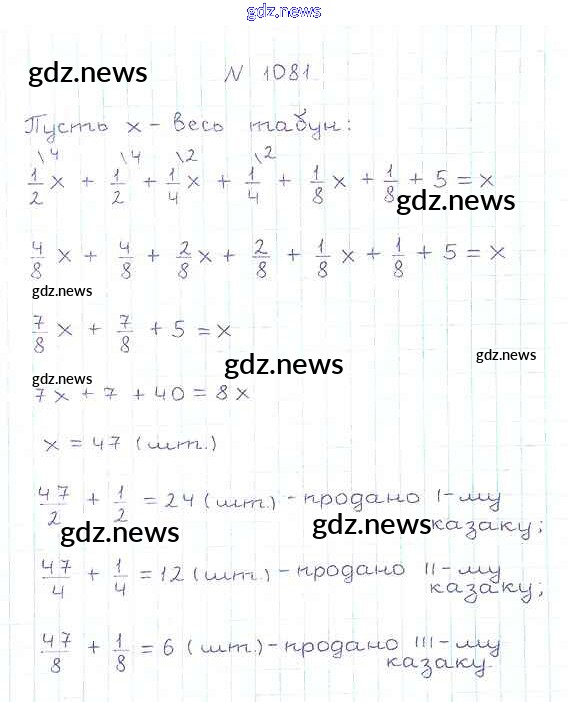 gdz.news
gdz.news
N 1081
Пусть x - весь табун:
\4 \4 \2 \2
1/2 x + 1/2 + 1/4 x + 1/4 + 1/8 x + 1/8 + 5 = x
gdz.news
4/8 x + 4/8 + 2/8 x + 2/8 + 1/8 x + 1/8 + 5 = x
gdz.news
7/8 x + 7/8 + 5 = x
gdz.news
gdz.news
gdz.news
7x + 7 + 40 = 8x
x = 47 (шт.)
47/2 + 1/2 = 24 (шт.) - продано I-му
казаку;
gdz.news
gdz.news
47/4 + 1/4 = 12 (шт.) - продано II-му
казаку;
47/8 + 1/8 = 6 (шт.) - продано III-му
казаку.
gdz.news